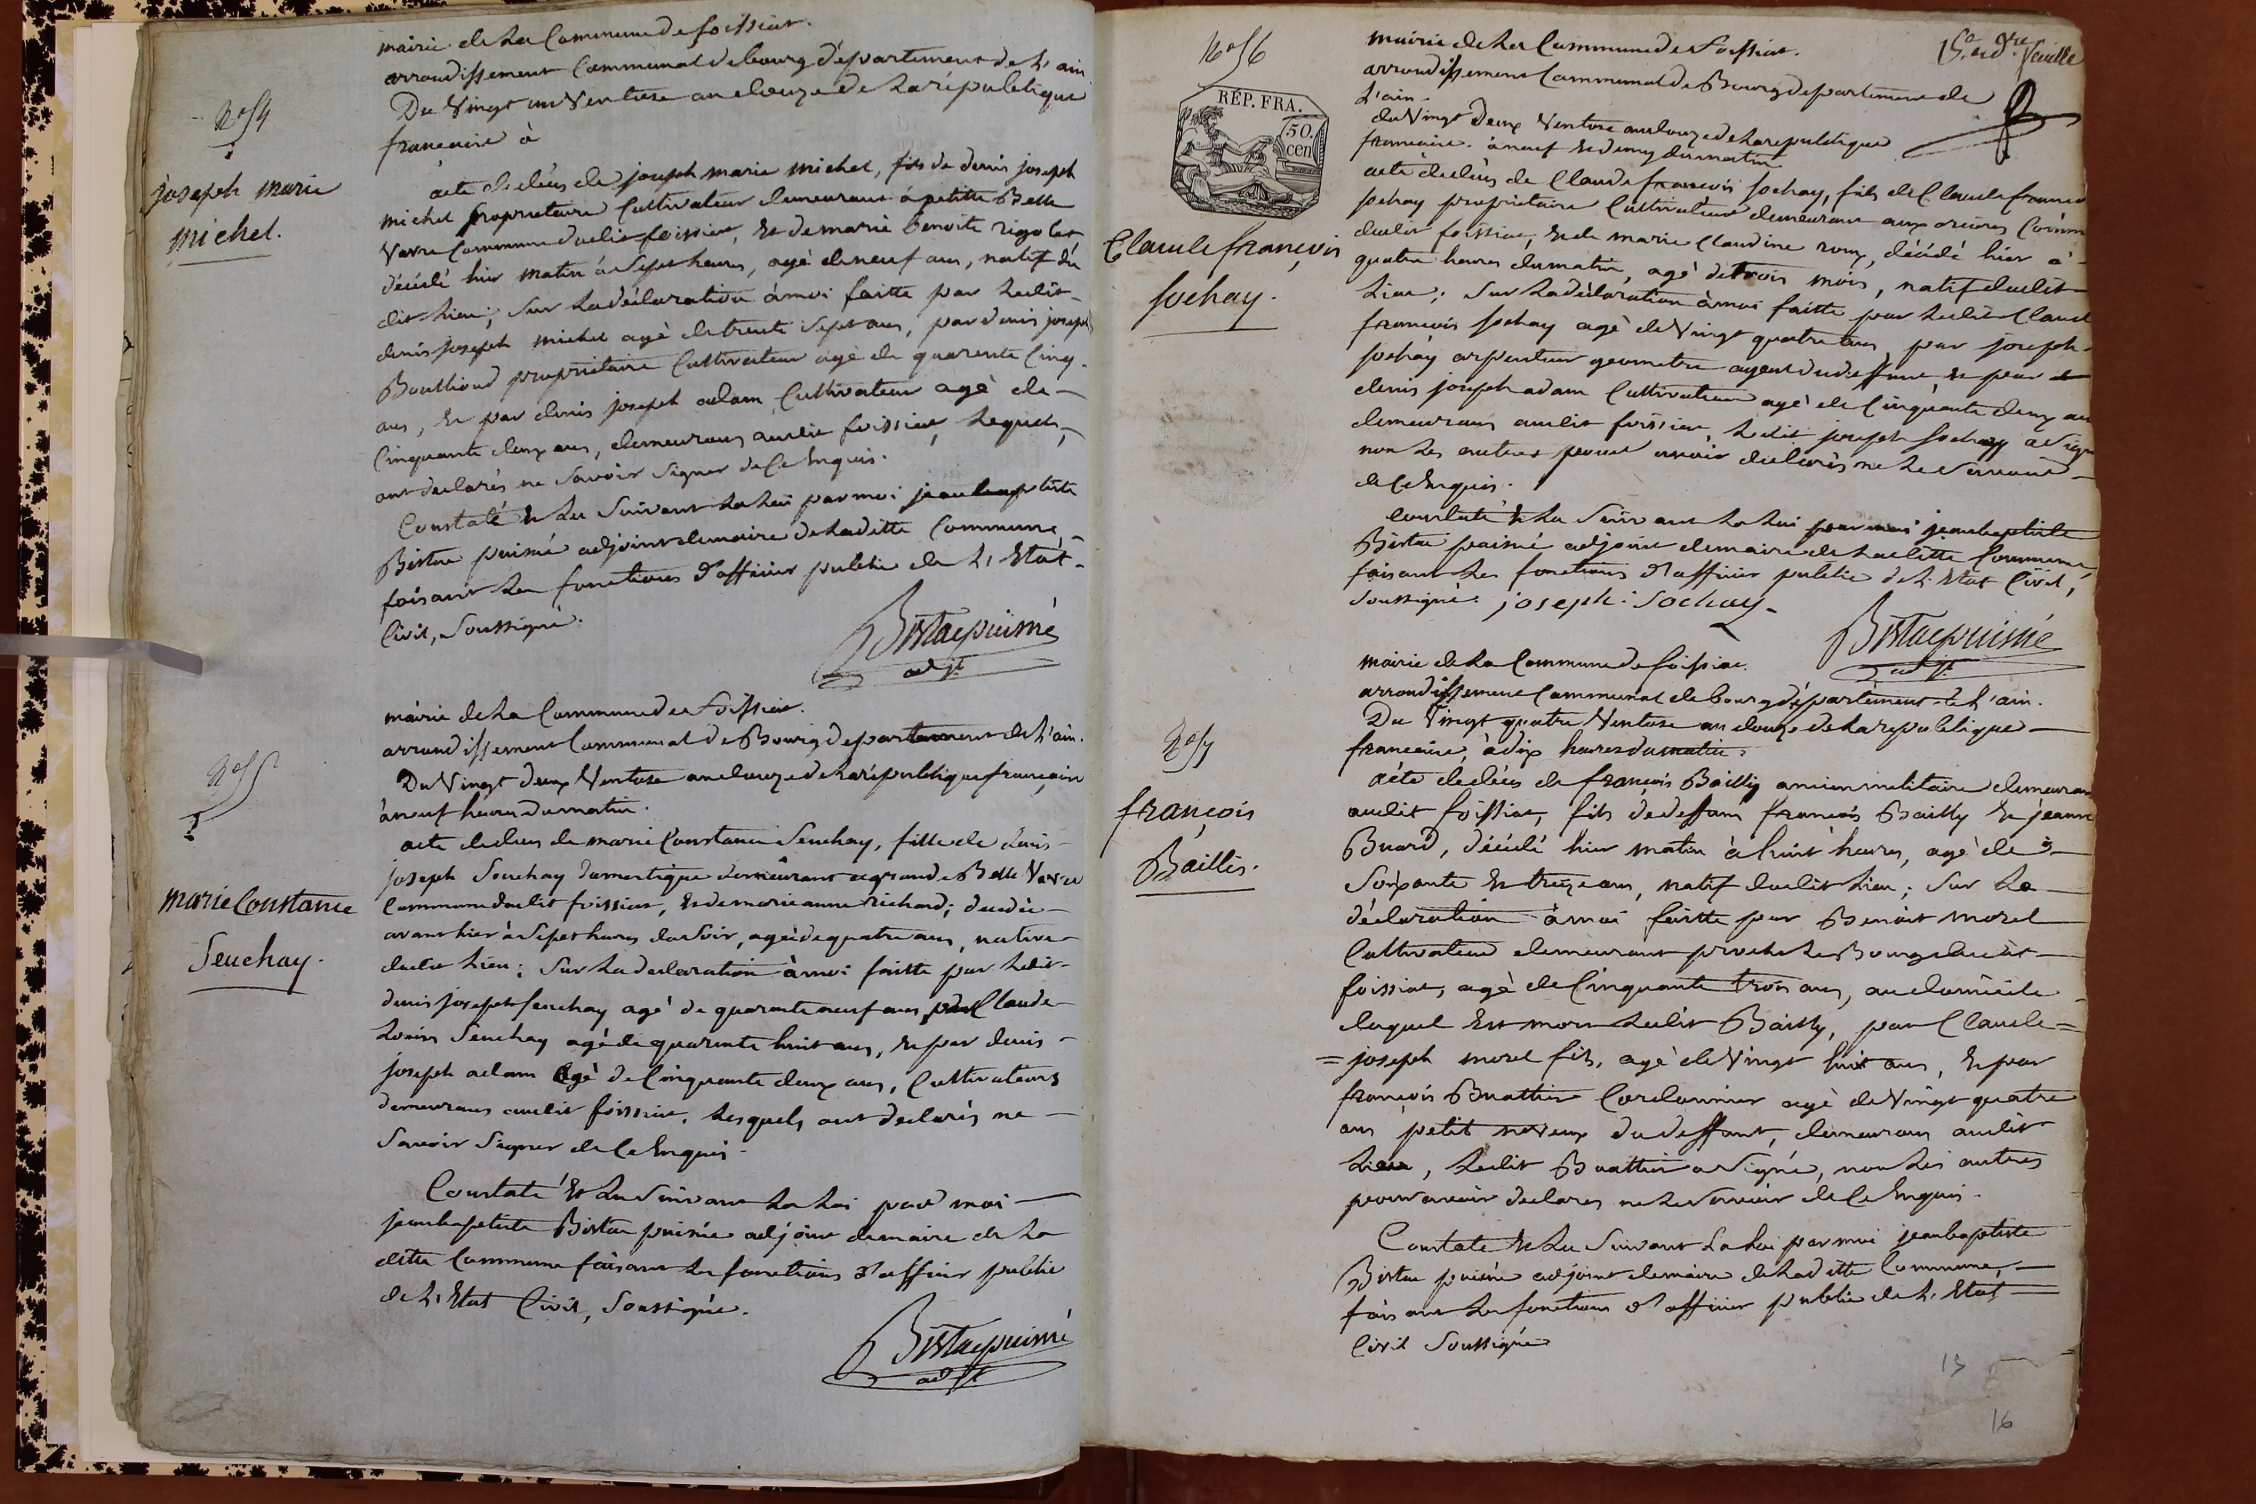 mairie de la Commune de foissiat.
arrondissement Communal de bourg département de l'ain
Du Vingt un Ventose an douze de la république
francaise à
N.º 54
joseph marie
michel.
acte de décès de joseph marie michel, fils de denis joseph
michel propriétaire Cultivateur demeurant à petitte Belle
Vavre Commune dudit foissiat, et de marie benoite rigolet
décédé hier matin à Sept heures, agé de neuf ans, natif du
dit lieu; Sur la déclaration à moi faitte par ledit
denis joseph michel agé de trente Sept ans, par denis joseph
Bouthioud propriétaire Cultivateur agé de quarente Cinq
ans, et par denis joseph adam Cultivateur agé de
Cinquante deux ans, demeurans audit foissiat, lequels
ont declarés ne Savoir Signer de Ce Enquis.
Constaté et lu Suivant la loi par moi jean baptiste
Birtae puisné adjoint demaire de laditte Commune,
faisant les fonctions d'officier public de l'Etat
Civil, Soussigné.
Birtae puisné
adjt.
mairie de la Commune de foissiat.
arrondissement Communal de Bourg departement de l'ain.
N.º 55
Du Vingt deux Ventose an douze de la république francaise
à neuf heures du matin.
marie Constance
Seuchay.
acte de décès de marie Constance Seuchay, fille de denis
joseph Seuchay domestique demeurant a grande Belle Vavre
Commune dudit foissiat, et de marie anne richard; decedée
avant hier à Sept heures du Soir, agée de quatre ans, native
dudit lieu; Sur la declaration à moi faitte par ledit
denis joseph Seuchay agé de quarante neuf ans par Claude
Louis Seuchay agé de quarante huit ans, et par denis
joseph adam agé de Cinquante deux ans, Cultivateurs
demeurans audit foissiat, lesquels ont declarés ne
Savoir Signer de Ce Enquis.
Constaté et lu Suivant la loi par moi
jean baptiste Birtae puisné adjoint demaire de la
ditte Commune faisant les fonctions d'officier public
de l'Etat Civil, Soussigné.
Birtae puisné
adjt.
15.e et d.re feuille
N.º 56
RÉP. FRA.
50.
cen
Claude françois
Sochay.
mairie de la Commune de Foissiat.
arrondissement Communal de Bourg departement de
l'ain.
du Vingt Deux Ventose an douze de la republique
francaise. à neuf et demy du matin
acte de décès de Claude francois Sochay, fils de Claude francois
Sochay propriétaire Cultivateur demeurant aux orcires Comm
dudit foissiat, et de marie Claudine roux, décédé hier à
quatre heures du matin, agé de trois mois, natif dudit
lieu; Sur la déclaration à moi faitte par ledit Claud
francois Sochay agé de Vingt quatre ans par joseph
Sochay arpenteur geometre ayeul du deffunt et par
denis joseph adam Cultivateur agé de Cinquante deux an
demeurans audit foissiat, ledit joseph Sochay a Signé
non les autres pour avoir declarés ne le Savoir
de Ce Enquis.
Constaté et lu Suivant la loi par moi jean baptiste
Birtae puisné adjoint demaire de laditte Commune,
faisant les fonctions d'officier public de l'Etat Civil,
Soussigné. joseph: Sochay
Birtae puisné
adjt.
mairie de la Commune de foissiat.
arrondissement Communal de bourg département de l'ain.
N.º 57
Du Vingt quatre Ventose an douze de la republique
francaise, à dix heures du matin.
françois
Baillis.
acte de décès de françois Bailly ancien militaire demeuran
audit foissiat, fils de deffunt francois Bailly et jeanne
Buard, décédé hier matin à huit heures, agé de
Soixante et treize ans, natif dudit lieu; Sur la
déclaration à moi faitte par Benoit morel
Cultivateur demeurant proche le Bourg dudit
foissiat, agé de Cinquante trois ans, au domicile
duquel Est mort ledit Bailly, par Claude =
= joseph morel fils, agé de Vingt huit ans, et par
françois Buattier Cordonnier agé de Vingt quatre
ans petit neveux du deffunt, demeurans audit
lieu, ledit Buattier a Signé, non les autres
pour avoir declares ne le Savoir de Ce Enquis.
Constaté et lu Suivant la loi par moi jean baptiste
Birtae puisné adjoint demaire de laditte Commune,
faisant les fonctions d'officier public de l'Etat
Civil Soussigné
13
16